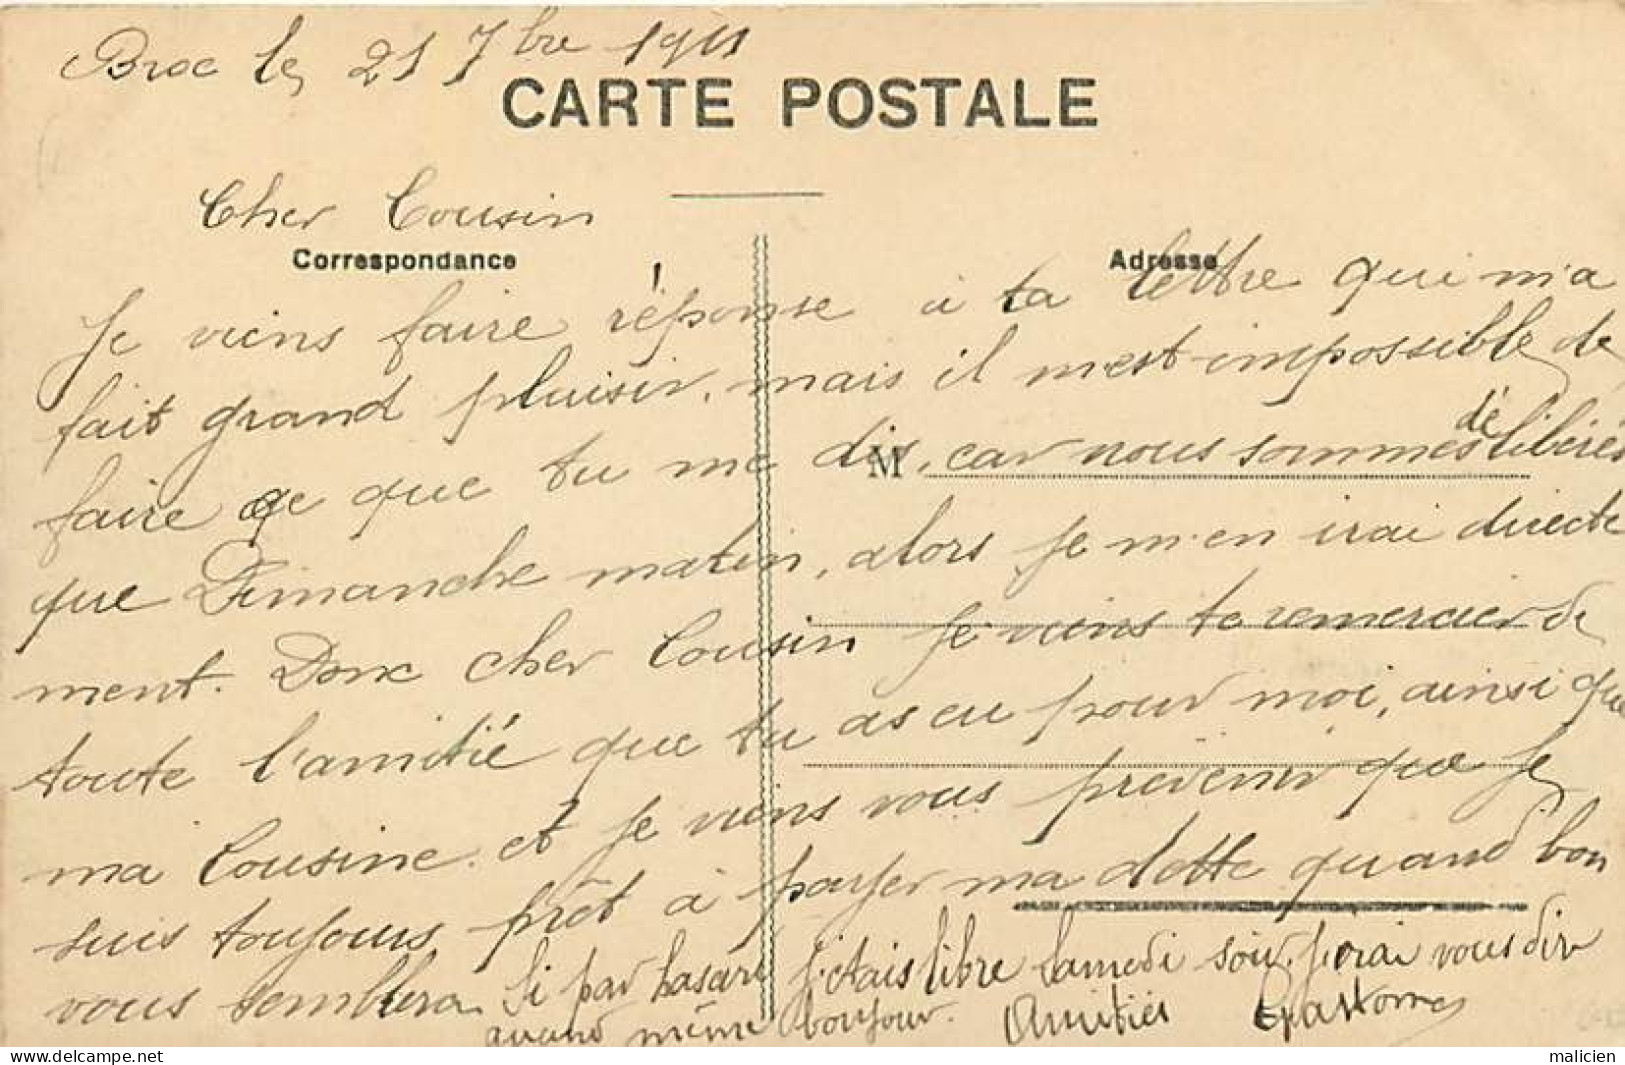 Broc le 21 7bre 1911
CARTE POSTALE
Cher Cousin
Correspondance
Adresse
Je viens faire réponse à ta lettre qui m'a
fait grand plaisir, mais il m'est impossible de
faire ce que tu me dis, car nous sommes délibérés
M
que Dimanche matin, alors je m'en irai directe
ment. Donc cher Cousin je viens te remercier de
toute l'amitié que tu as eu pour moi, ainsi que
ma Cousine. et je viens vous prévenir que je
suis toujours prêt à payer ma dette quand bon
vous semblera. Si par hasard j'étais libre Samedi soir j'irai vous dire
quand même bonjour. Amitiés
delcampe.net
malicien